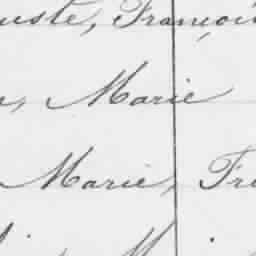 uste, Françoi
, Marie
Marie, Fr